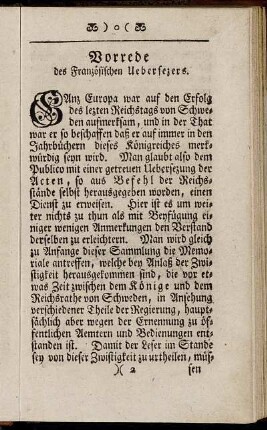 ) o (
Vorrede
des Französischen Uebersezers.
GAnz Europa war auf den Erfolg
des lezten Reichstags von Schwe-
den aufmerksam, und in der That
war er so beschaffen daß er auf immer in den
Jahrbüchern dieses Königreiches merk-
würdig seyn wird. Man glaubt also dem
Publico mit einer getreuen Uebersezung der
Acten, so aus Befehl der Reichs-
stände selbst herausgegeben worden, einen
Dienst zu erweisen. Hier ist es um wei-
ter nichts zu thun als mit Beyfügung ei-
niger wenigen Anmerkungen den Verstand
derselben zu erleichtern. Man wird gleich
zu Anfange dieser Sammlung die Memo-
riale antreffen, welche bey Anlaß der Zwi-
stigkeit herausgekommen sind, die vor et-
was Zeit zwischen dem Könige und dem
Reichsrathe von Schweden, in Ansehung
verschiedener Theile der Regierung, haupt-
sächlich aber wegen der Ernennung zu öf-
fentlichen Aemtern und Bedienungen ent-
standen ist. Damit der Leser im Stande
sey von dieser Zwistigkeit zu urtheilen, müs-
)( 2 sen